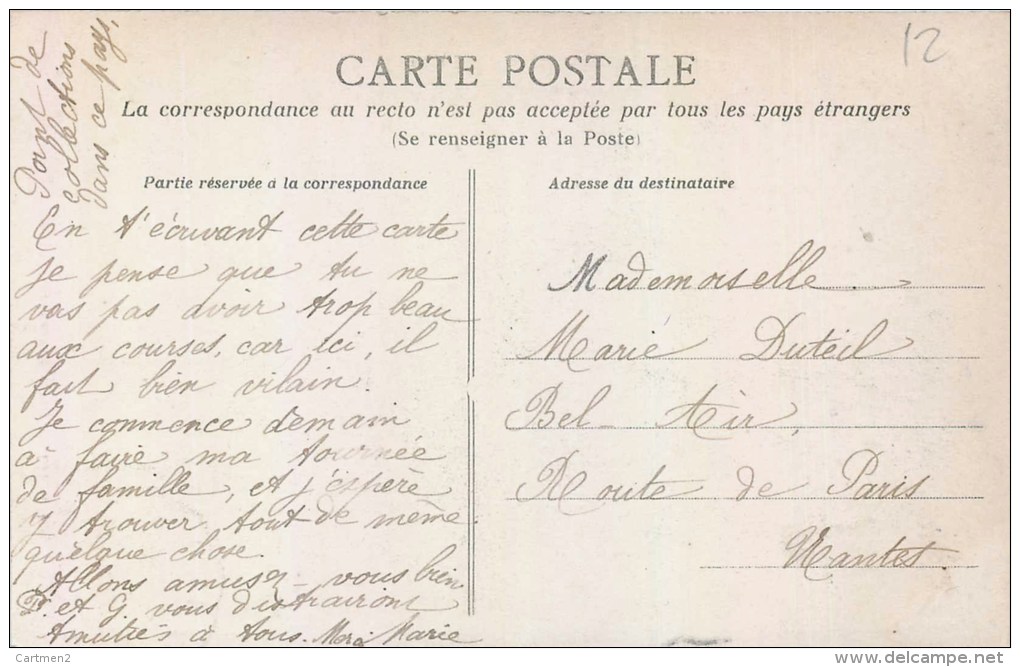 12
Point de
collections
dans ce pays,
CARTE POSTALE
La correspondance au recto n'est pas acceptée par tous les pays étrangers
(Se renseigner à la Poste)
Partie réservée à la correspondance
En t'écrivant cette carte
je pense que tu ne
vas pas avoir trop beau
aux courses, car ici, il
fait bien vilain.
Je commence demain
à faire ma tournée
de famille, et j'espère
y trouver tout de même
quelque chose.
Allons amusez-vous bien
P. et G. vous distrairont
Amitiés à tous. Marie
Adresse du destinataire
Mademoiselle
Marie Duteil
Bel-Air,
Route de Paris
Nantes.
Cartmen2